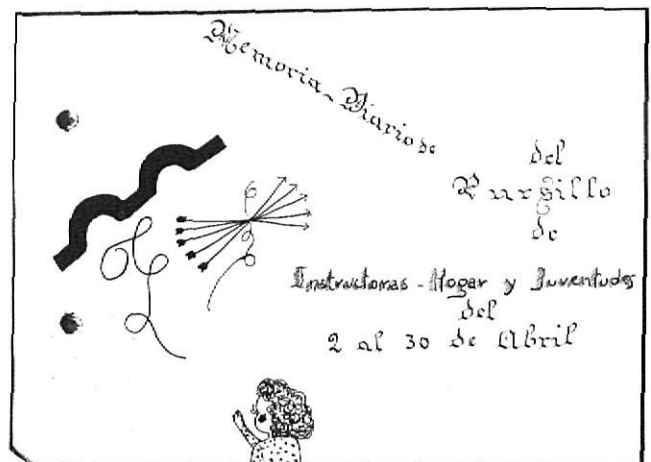 Memoria-Diario de
del
Cursillo
de
Instructoras-Hogar y Juventudes
del
2 al 30 de Abril